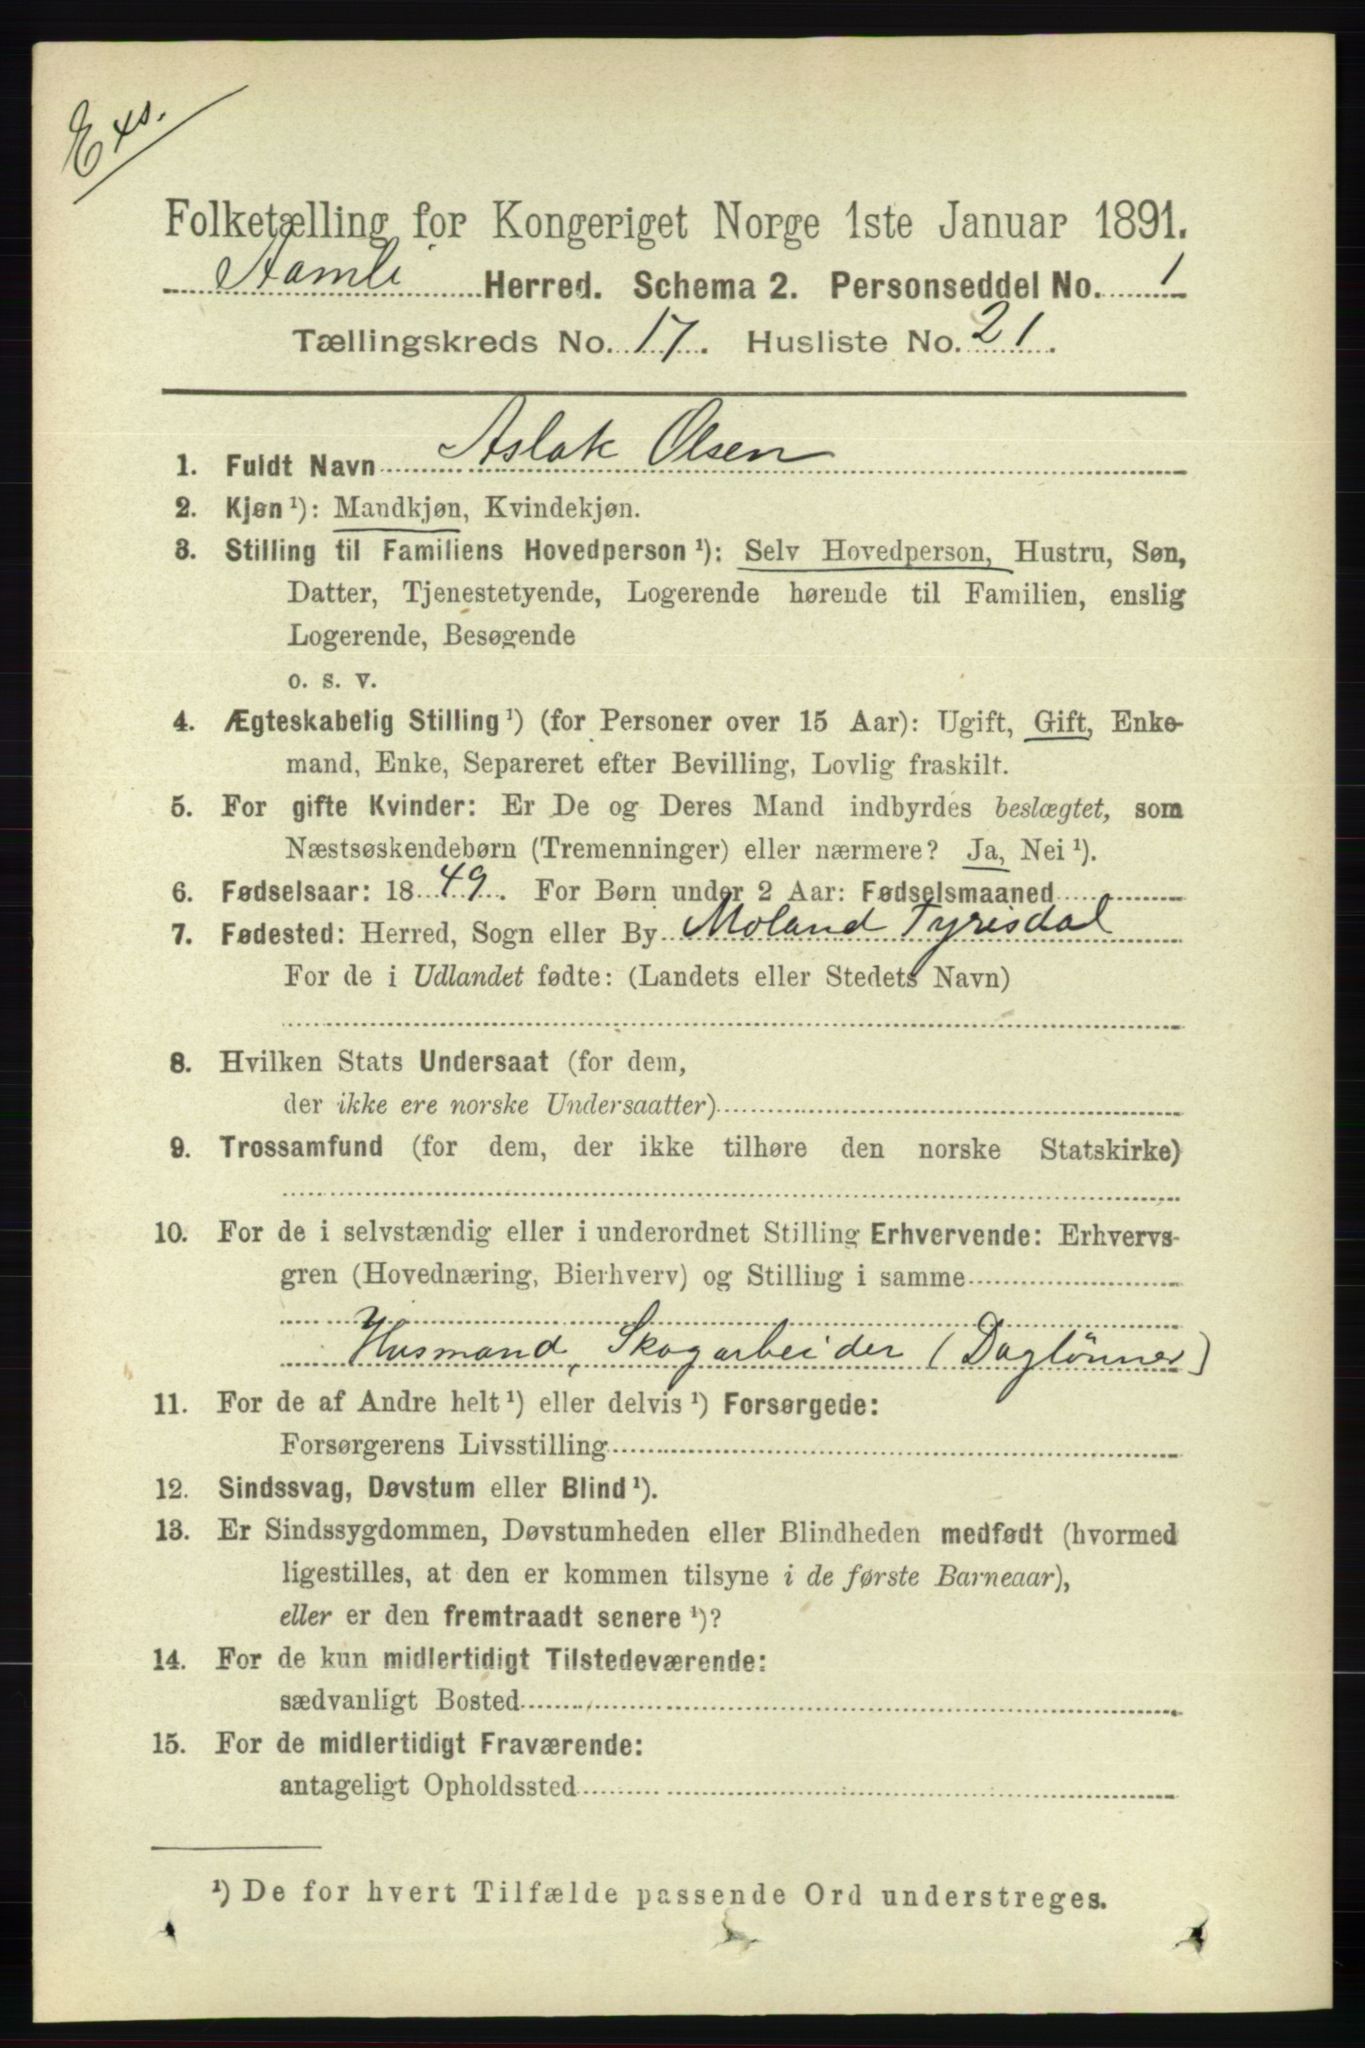 Exs.
Folketælling for Kongeriget Norge 1ste Januar 1891.
Aamli Herred. Schema 2. Personseddel No. 1
Tællingskreds No. 17. Husliste No. 21.
1. Fuldt Navn Aslak Olsen
2. Kjøn ¹): Mandkjøn, Kvindekjøn.
3. Stilling til Familiens Hovedperson ¹): Selv Hovedperson, Hustru, Søn,
Datter, Tjenestetyende, Logerende hørende til Familien, enslig
Logerende, Besøgende
o. s. v.
4. Ægteskabelig Stilling ¹) (for Personer over 15 Aar): Ugift, Gift, Enke-
mand, Enke, Separeret efter Bevilling, Lovlig fraskilt.
5. For gifte Kvinder: Er De og Deres Mand indbyrdes beslægtet, som
Næstsøskendebørn (Tremenninger) eller nærmere? Ja, Nei ¹).
6. Fødselsaar: 1849. For Børn under 2 Aar: Fødselsmaaned
7. Fødested: Herred, Sogn eller By Moland Tyrisdal
For de i Udlandet fødte: (Landets eller Stedets Navn)
8. Hvilken Stats Undersaat (for dem,
der ikke ere norske Undersaatter)
9. Trossamfund (for dem, der ikke tilhøre den norske Statskirke)
10. For de i selvstændig eller i underordnet Stilling Erhvervende: Erhvervs-
gren (Hovednæring, Bierhverv) og Stilling i samme
Husmand, Skogarbeider (Daglønner)
11. For de af Andre helt ¹) eller delvis ¹) Forsørgede:
Forsørgerens Livsstilling
12. Sindssvag, Døvstum eller Blind ¹).
13. Er Sindssygdommen, Døvstumheden eller Blindheden medfødt (hvormed
ligestilles, at den er kommen tilsyne i de første Barneaar),
eller er den fremtraadt senere ¹)?
14. For de kun midlertidigt Tilstedeværende:
sædvanligt Bosted
15. For de midlertidigt Fraværende:
antageligt Opholdssted
¹) De for hvert Tilfælde passende Ord understreges.